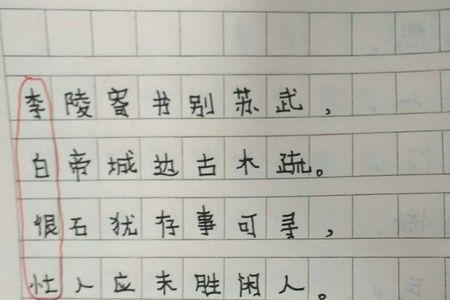 李陵寄书别苏武，
白帝城边古木疏。
恨石犹存事可寻，
忙人应未胜闲人。